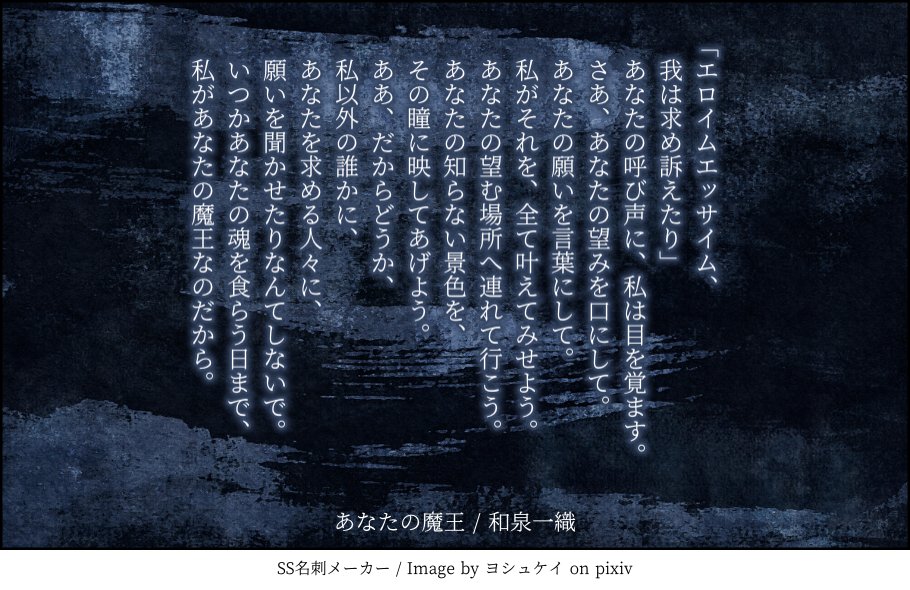 「エロイムエッサイム、
我は求め訴えたり」
あなたの呼び声に、私は目を覚ます。
さあ、あなたの望みを口にして。
あなたの願いを言葉にして。
私がそれを、全て叶えてみせよう。
あなたの望む場所へ連れて行こう。
あなたの知らない景色を、
その瞳に映してあげよう。
ああ、だからどうか、
私以外の誰かに、
あなたを求める人々に、
願いを聞かせたりなんてしないで。
いつかあなたの魂を食らう日まで、
私があなたの魔王なのだから。
あなたの魔王 / 和泉一織
SS名刺メーカー / Image by ヨシュケイ on pixiv